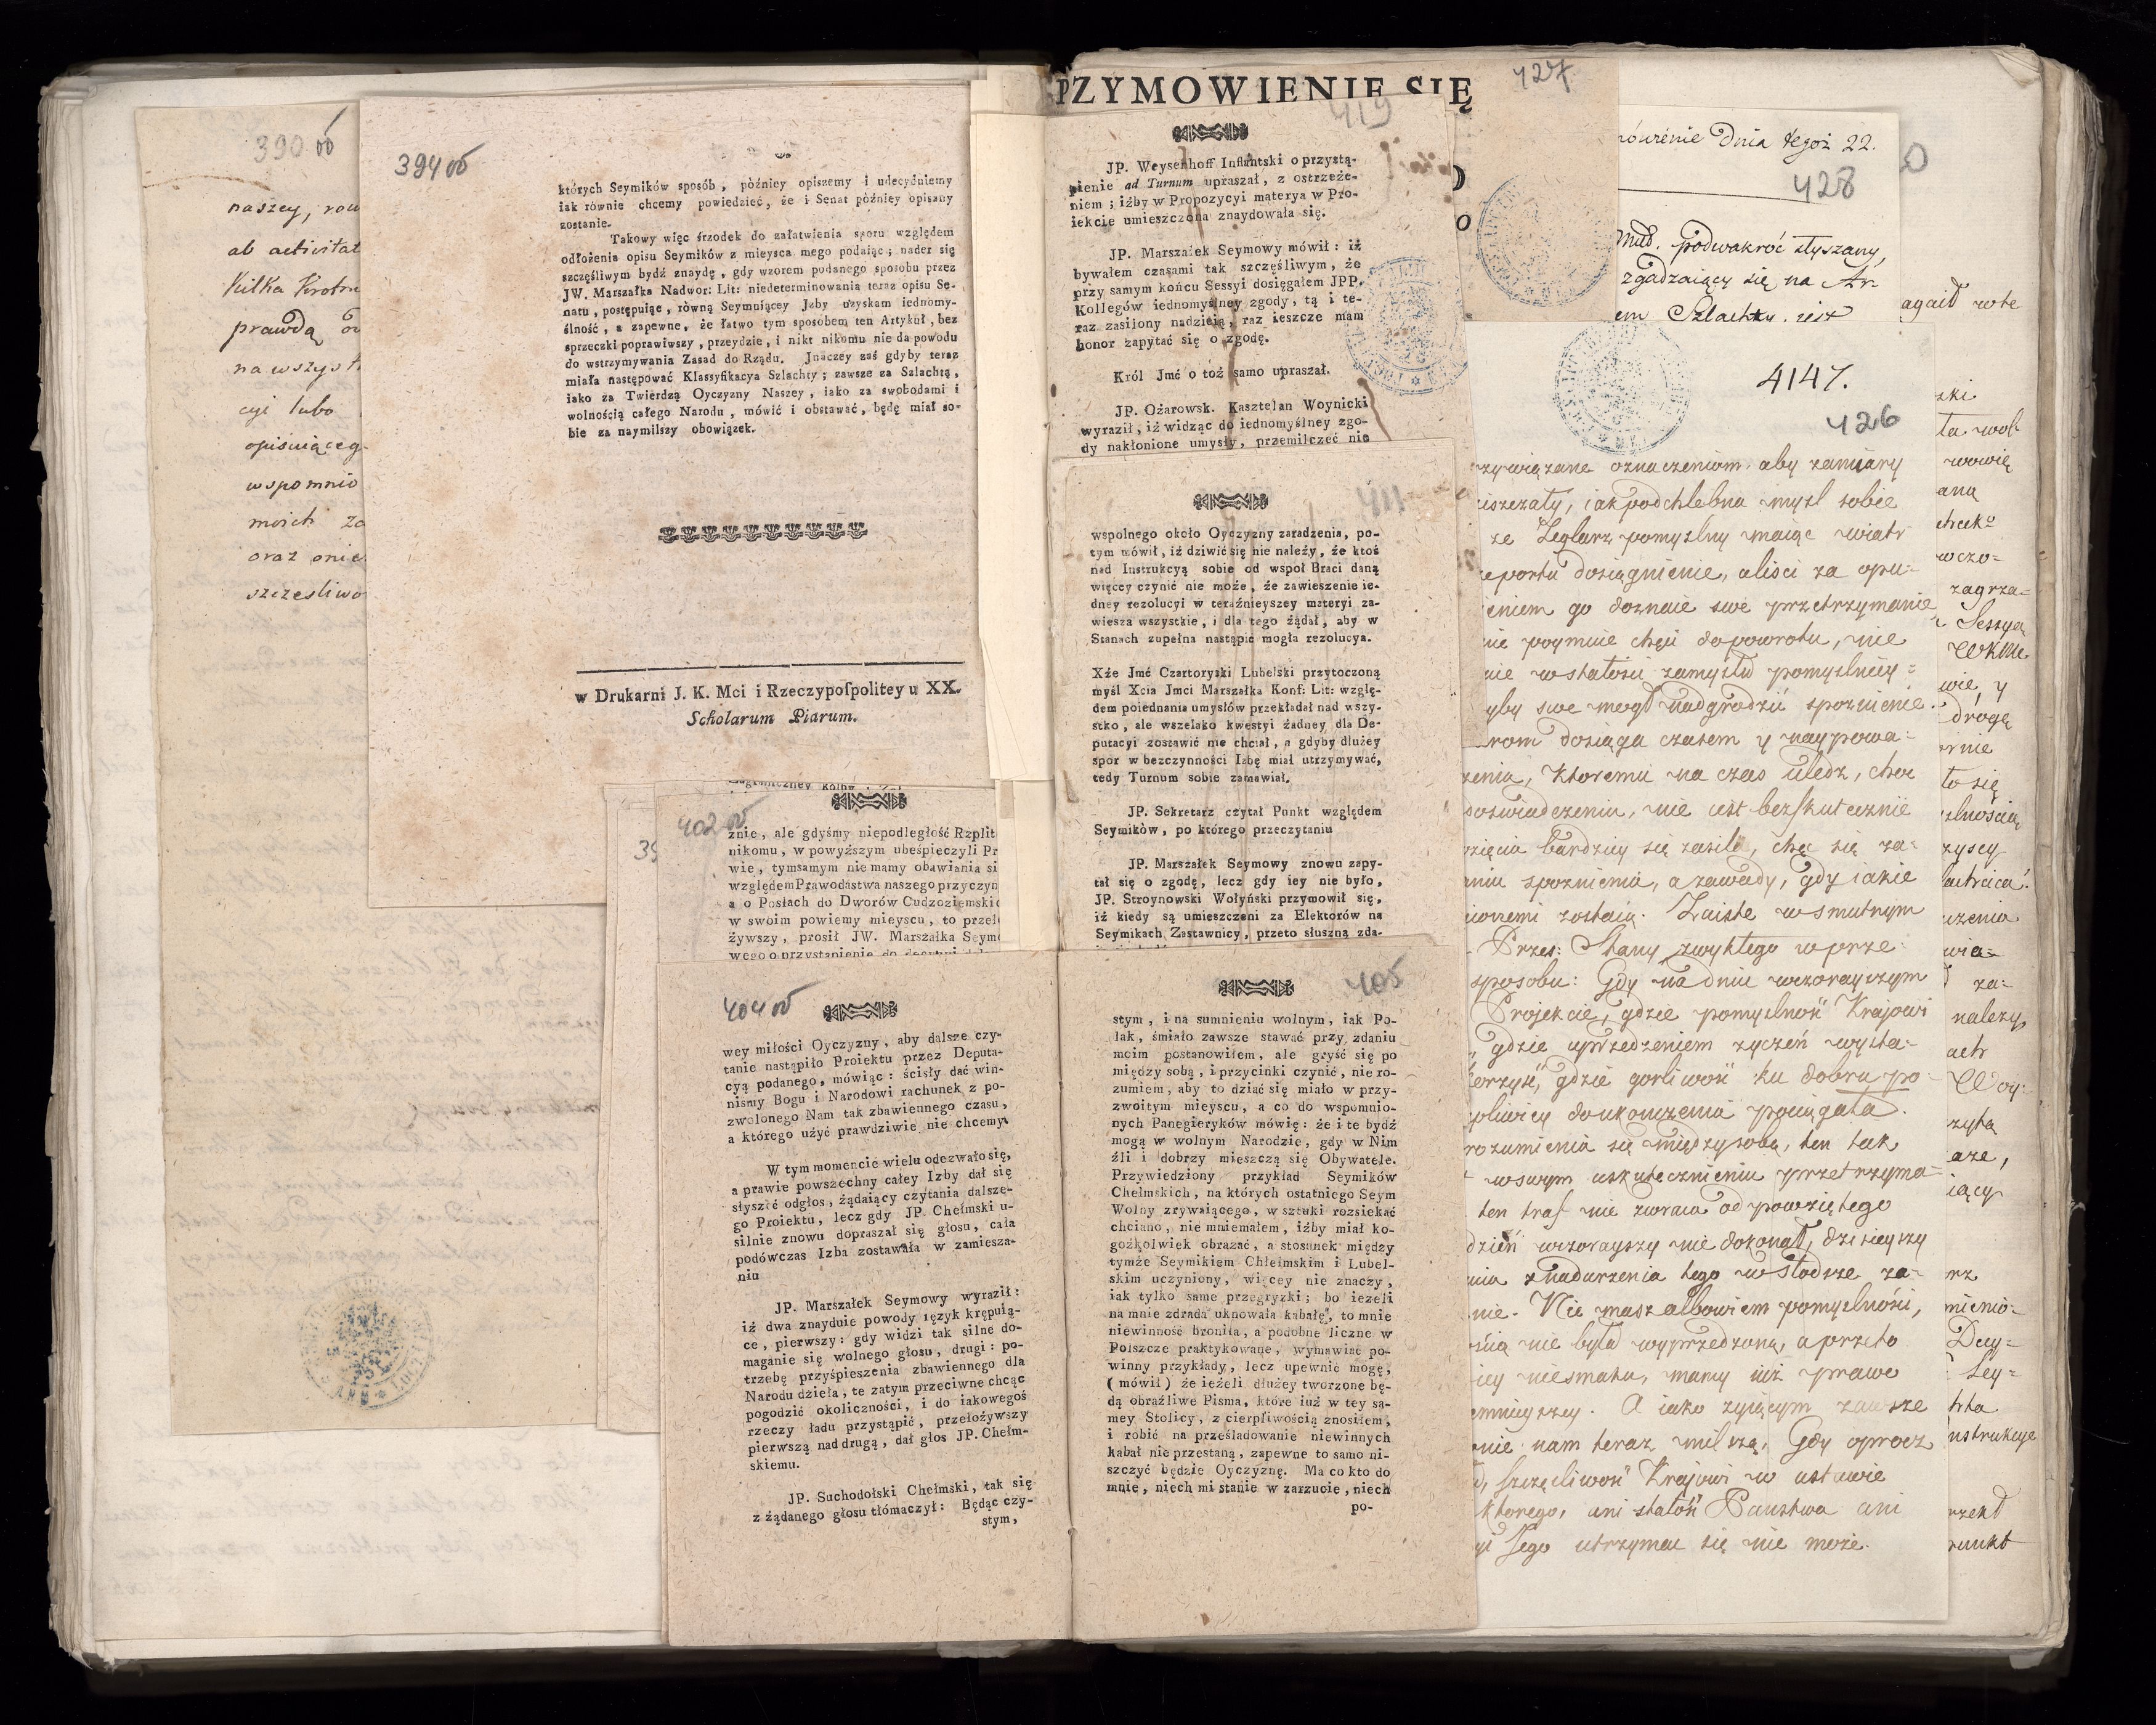 390 об
naszey, row
ab activitat
Kilka Krotn
prawdą
na wszyst
cyi lubo
opisuiąceg
wspomnio
moich za
oraz onie
szczesliwo
394 об
których Seymików sposób, późniey opiszemy i udecyduiemy
iak równie chcemy powiedzieć, że i Senat późniey opisany
zostanie.
Takowy więc śrzodek do załatwienia sporu względem
odłożenia opisu Seymików z mieysca mego podaiąc; nader się
szczęśliwym bydź znaydę, gdy wzorem podanego sposobu przez
JW. Marszałka Nadwor: Lit: niedeterminowania teraz opisu Se-
natu, postępuiąc, równą Seymuiącey Jzby uzyskam iednomy-
ślność, a zapewne, że łatwo tym sposobem ten Artykuł, bez
sprzeczki poprawiwszy, przeydzie, i nikt nikomu nie da powodu
do wstrzymywania Zasad do Rządu. Jnaczey zaś gdyby teraz
miała następować Klassyfikacya Szlachty; zawsze za Szlachtą,
iako za Twierdzą Oyczyzny Naszey, iako za swobodami i
wolnością całego Narodu, mówić i obstawać, będę miał so-
bie za naymilszy obowiązek.
w Drukarni J. K. Mci i Rzeczypospolitey u XX.
Scholarum Piarum.
39
402 об
znie, ale gdyśmy niepodległość Rzplit
nikomu, w powyższym ubeśpieczyli Pr
wie, tymsamym nie mamy obawiania si
względem Prawodastwa naszego przyczyn
a o Posłach do Dworów Cudzoziemskic
w swoim powiemy mieyscu, to przeł
żywszy, prosił JW. Marszałka Seym
wego o przystąpienie do
404 об
wey miłości Oyczyzny, aby dalsze czy-
tanie nastąpiło Proiektu przez Deputa-
cyą podanego, mówiąc: ścisły dać win-
niśmy Bogu i Narodowi rachunek z po-
zwolonego Nam tak zbawiennego czasu,
a którego użyć prawdziwie nie chcemy.
W tym momencie wielu odezwało się,
a prawie powszechny całey Izby dał się
słyszeć odgłos, żądaiący czytania dalsze-
go Proiektu, lecz gdy JP. Chełmski u-
silnie znowu dopraszał się głosu, cała
podówczas Izba zostawała w zamiesza-
niu
JP. Marszałek Seymowy wyraził:
iż dwa znayduie powody ięzyk krępuią-
ce, pierwszy: gdy widzi tak silne do-
maganie się wolnego głosu, drugi: po-
trzebę przyśpieszenia zbawiennego dla
Narodu dzieła, te zatym przeciwne chcąc
pogodzić okoliczności, i do iakowegoś
rzeczy ładu przystąpić, przełożywszy
pierwszą nad drugą, dał głos JP. Chełm-
skiemu.
JP. Suchodolski Chełmski, tak się
z żądanego głosu tłómaczył: Będąc czy-
stym,
PRZYMOWIENIE SIĘ
419
JP. Weysenhoff Inflantski o przystą-
pienie ad Turnum upraszał, z ostrzeże-
niem; iżby w Propozycyi materya w Pro-
iekcie umieszczona znaydowała się.
JP. Marszałek Seymowy mówił: iż
bywałem czasami tak szczęśliwym, że
przy samym końcu Sessyi dosięgałem JPP.
Kollegów iednomyślney zgody, tą i te-
raz zasilony nadzieią, raz ieszcze mam
honor zapytać się o zgodę.
Król Jmć o toż samo upraszał.
JP. Ożarowsk. Kasztelan Woynicki
wyraził, iż widząc do iednomyślney zgo-
dy nakłonione umysły, przemilczeć nie
411
wspolnego około Oyczyzny zaradzenia, po-
tym mówił, iż dziwić się nie należy, że ktoś
nad Instrukcyą sobie od wspoł Braci daną
więcey czynić nie może, że zawieszenie ie-
dney rezolucyi w teraźnieyszey materyi za-
wiesza wszystkie, i dla tego żądał, aby w
Stanach zupełna nastąpić mogła rezolucya.
Xże Jmć Czartoryski Lubelski przytoczoną
myśl Xcia Jmci Marszałka Konf: Lit: wzglę-
dem poiednania umysłów przekładał nad wszy-
stko, ale wszelako kwestyi żadney dla De-
putacyi zostawić nie chciał, a gdyby dłużey
spor w bezczynności Izbę miał utrzymywać,
tedy Turnum sobie zamawiał.
JP. Sekretarz czytał Punkt względem
Seymików, po którego przeczytaniu
JP. Marszałek Seymowy znowu zapy-
tał się o zgodę, lecz gdy iey nie było,
JP. Stroynowski Wołyński przymowił się,
iż kiedy są umieszczeni za Elektorów na
Seymikach Zastawnicy, przeto słuszną zda-
405
stym, i na sumnieniu wolnym, iak Po-
lak, śmiało zawsze stawać przy zdaniu
moim postanowiłem, ale gryść się po
między sobą, i przycinki czynić, nie ro-
zumiem, aby to dziać się miało w przy-
zwoitym mieyscu, a co do wspomnio-
nych Panegieryków mówię: że i te bydź
mogą w wolnym Narodzie, gdy w Nim
źli i dobrzy mieszczą się Obywatele.
Przywiedziony przykład Seymików
Chełmskich, na których ostatniego Seym
Wolny zrywaiącego, w sztuki rozsiekać
chciano, nie mniemałem, iżby miał ko-
goźkolwiek obrażać, a stosunek między
tymże Seymikiem Chłeimskim i Lubel-
skim uczyniony, więcey nie znaczy,
iak tylko same przegryzki; bo ieżeli
na mnie zdrada uknowała kabałę, to mnie
niewinność broniła, a podobne liczne w
Polszcze praktykowane, wymawiać po-
winny przykłady, lecz upewnić mogę,
(mówił) że ieżeli dłużey tworzone bę-
dą obraźliwe Pisma, które iuż w tey sa-
mey Stolicy, z cierpliwością znosiłem,
i robić na prześladowanie niewinnych
kabał nie przestaną, zapewne to samo ni-
szczyć będzie Oyczyznę. Ma co kto do
mnie, niech mi stanie w zarzucie, niech
po-
427
Dnia tegoż 22.
428
podwakroć słyszany,
zgadzaiący się na Ar
em Szlachty. iest
4147.
426
oznaczeniom. aby zamiary
iak podchlebna mysl sobie
ze Zeglarz pomyslny maiąc wiatr
dosiągnienie, alisci za opu-
eniem go doznaie swe przetrzymanie
nie poymuie chęci do powrotu, nie
w stałosci zamysłu pomyslniey=
yby swe mogł nadgrodzić spoznienie.
dosiąga czasem y naypowa=
zenia, ktoremu na czas uledz, choc
nie iest bezskutecznie
bardziey się zasila, chęć się za=
spoznienia, a zawady, gdy iakie
zostaią. Zaiste w smutnym
Przes: Stany zwykłego w prze
sposobu: Gdy na dniu wczorayszym
Projekcie, gdzie pomyslność Krajowi
gdzie uprzedzeniem zyczeń
gdzie gorliwość ku dobru po-
do ukonczenia pociągała.
rozumienia się między sobą, ten tak
w swym uskutecznieniu przetrzyma=
ten traf nie zwraca od powziętego
dzień wczorayszy nie dokonał, dzisieyszy
z nadarzenia tego w słodsze za-
nie. Nie masz albowiem pomyslności,
nie była wyprzedzona, a przeto
niesmaku, mamy iuż prawo
A iako zyiącym zawsze
nie nam teraz milszą, Gdy oprocz
szczęsliwość Krajowi w ustawie
ktorego, ani stałość Panstwa ani
Jego utrzymać się nie może.
ski
wczo-
zagrza-
Sessya
WKMc
y
drogę
to się
należy
Woy:
iący
mienio-
Decy=
Sey=
nstrukcye